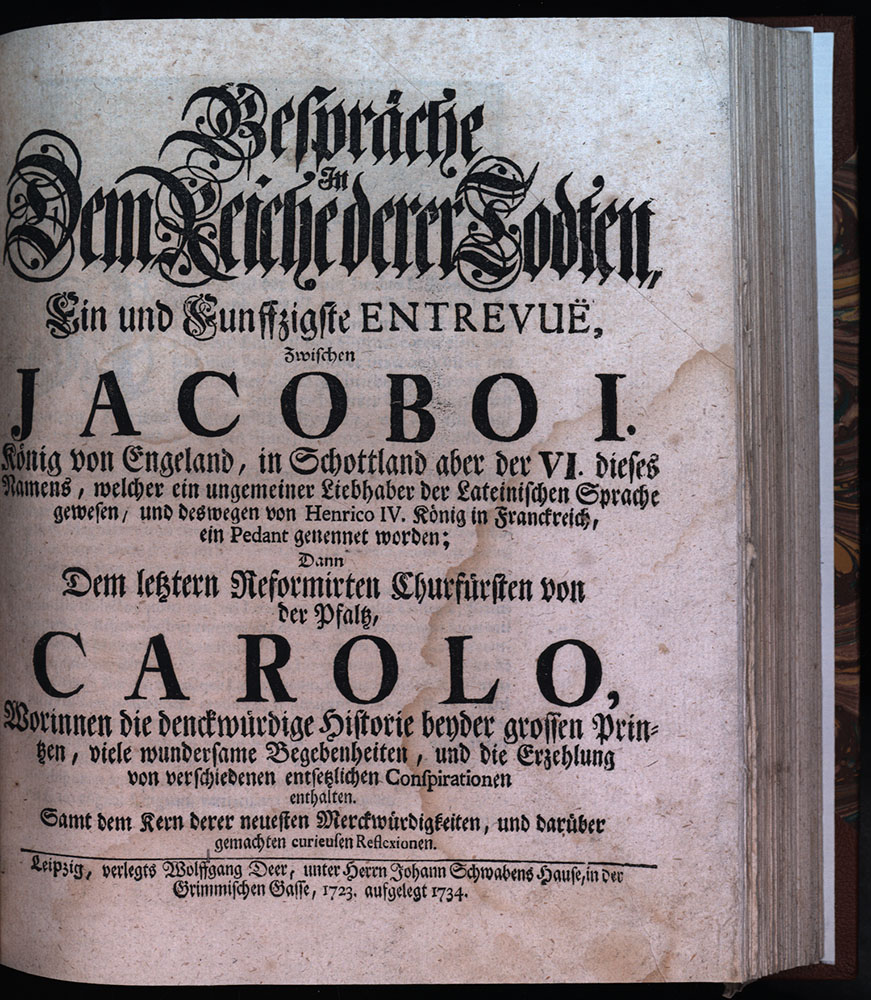 Gespräche
In
Dem Reiche derer Todten,
Ein und Funffzigste ENTREVUË,
Zwischen
JACOBO I.
König von Engeland, in Schottland aber der VI. dieses
Namens, welcher ein ungemeiner Liebhaber der Lateinischen Sprache
gewesen, und deswegen von Henrico IV. König in Franckreich,
ein Pedant genennet worden;
Dann
Dem letztern Reformirten Churfürsten von
der Pfaltz,
CAROLO,
Worinnen die denckwürdige Historie beyder grossen Prin-
tzen, viele wundersame Begebenheiten, und die Erzehlung
von verschiedenen entsetzlichen Conspirationen
enthalten.
Samt dem Kern derer neuesten Merckwürdigkeiten, und darüber
gemachten curieusen Reflexionen.
Leipzig, verlegts Wolffgang Deer, unter Herrn Johann Schwabens Hause, in der
Grimmischen Gasse, 1723. aufgelegt 1734.